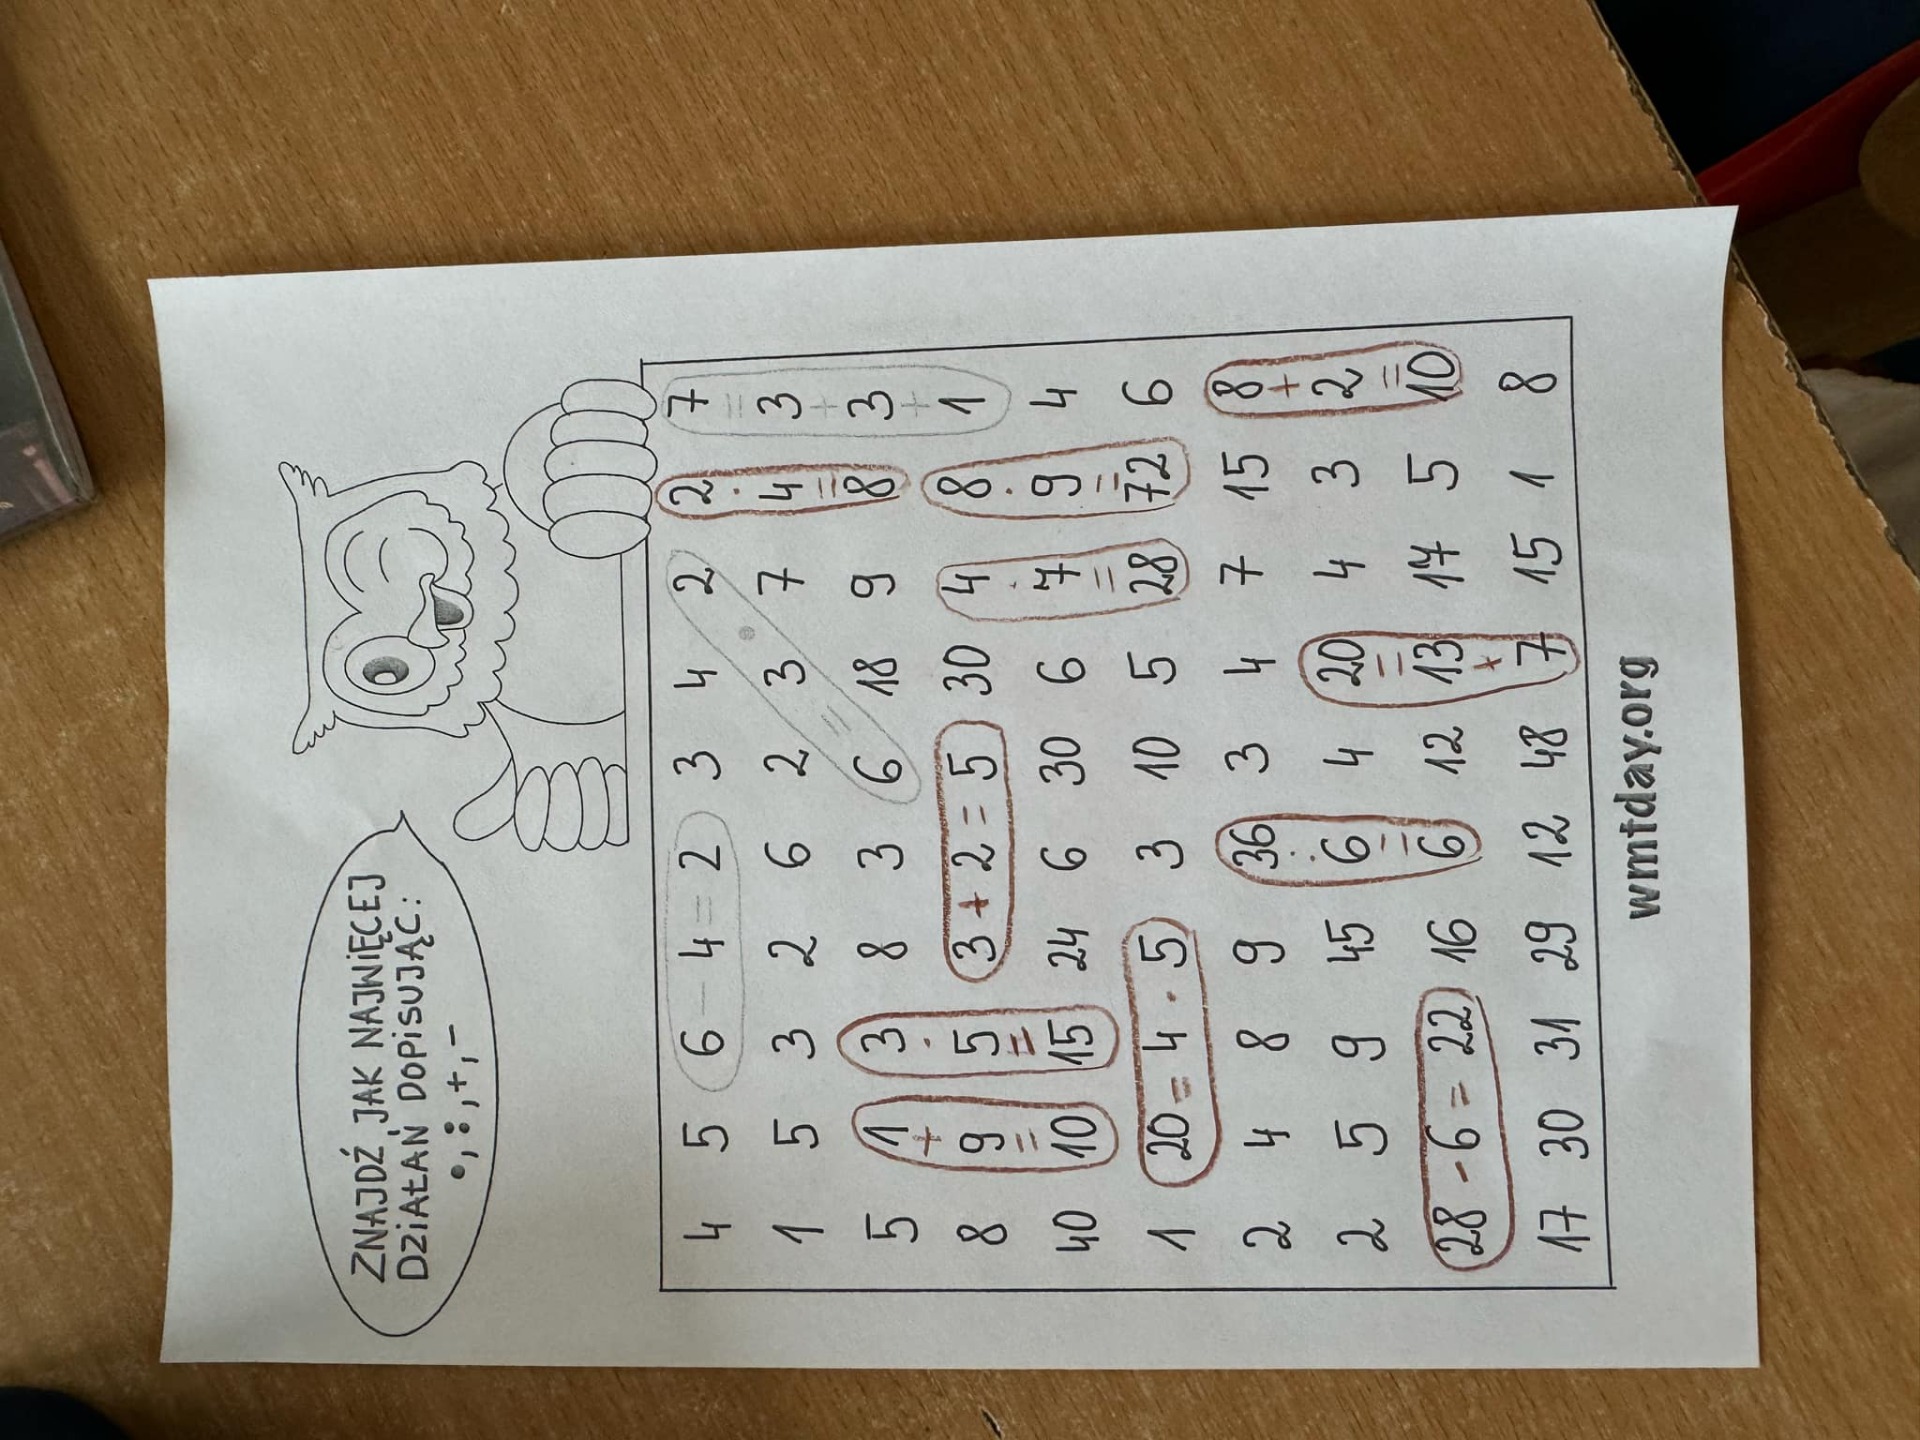 ZNAJDŹ JAK NAJWIĘCEJ
DZIAŁAŃ DOPISUJĄC:
•, :, +, -
4 5 6 - 4 = 2 3 4 2 2 7
· · =
1 5 3 2 6 2 3 7 4 3
= = +
5 1 3 8 3 6 18 9 8 3
+ · +
8 9 5 3 + 2 = 5 30 4 8 1
= = · ·
40 10 15 24 6 30 6 7 9 4
= =
1 20 = 4 · 5 3 10 5 28 72 6
2 4 8 9 36 3 4 7 15 8
: +
2 5 9 45 6 4 20 4 3 2
= = =
28 - 6 = 22 16 6 12 13 17 5 10
+
17 30 31 29 12 48 7 15 1 8
wmtday.org